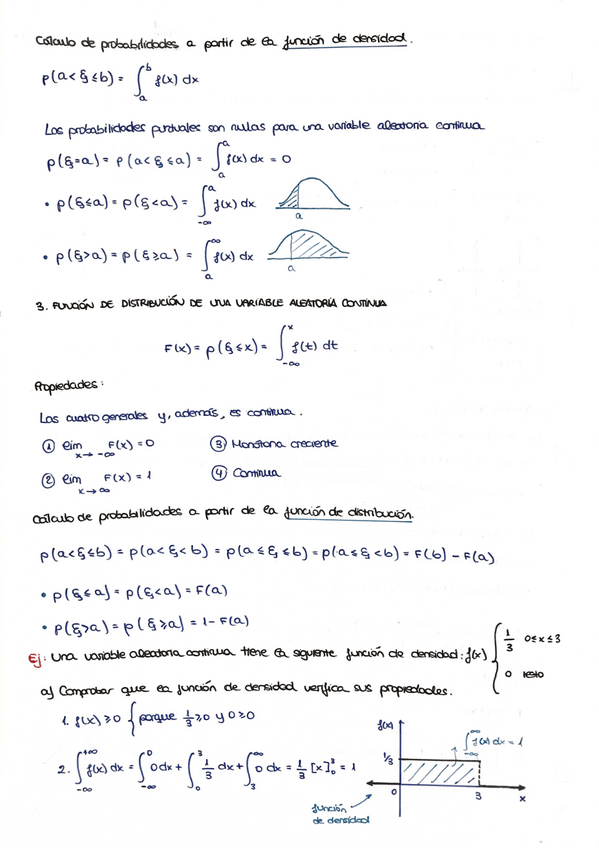 Cálculo de probabilidades a partir de la función de densidad.
p(a < ξ ≤ b) = ∫_a^b f(x) dx
Las probabilidades puntuales son nulas para una variable aleatoria continua
p(ξ = a) = p(a < ξ ≤ a) = ∫_a^a f(x) dx = 0
• p(ξ ≤ a) = p(ξ < a) = ∫_{-∞}^a f(x) dx
a
• p(ξ > a) = p(ξ ≥ a) = ∫_a^∞ f(x) dx
a
3. FUNCIÓN DE DISTRIBUCIÓN DE UNA VARIABLE ALEATORIA CONTINUA
F(x) = p(ξ ≤ x) = ∫_{-∞}^x f(t) dt
Propiedades:
Las cuatro generales y, además, es continua.
① lim_{x→-∞} F(x) = 0 ③ Monótona creciente
② lim_{x→∞} F(x) = 1 ④ Continua
Cálculo de probabilidades a partir de la función de distribución.
p(a < ξ ≤ b) = p(a < ξ < b) = p(a ≤ ξ ≤ b) = p(a ≤ ξ < b) = F(b) - F(a)
• p(ξ ≤ a) = p(ξ < a) = F(a)
• p(ξ > a) = p(ξ ≥ a) = 1 - F(a)
Ej: Una variable aleatoria continua tiene la siguiente función de densidad: f(x) { 1/3 0 ≤ x ≤ 3
0 resto
a) Comprobar que la función de densidad verifica sus propiedades.
1. f(x) ≥ 0 { porque 1/3 ≥ 0 y 0 ≥ 0
2. ∫_{-∞}^{+∞} f(x) dx = ∫_{-∞}^0 0 dx + ∫_0^3 1/3 dx + ∫_3^∞ 0 dx = 1/3 [x]_0^3 = 1
f(x)
∫_{-∞}^∞ f(x) dx = 1
1/3
0 3 x
función
de densidad